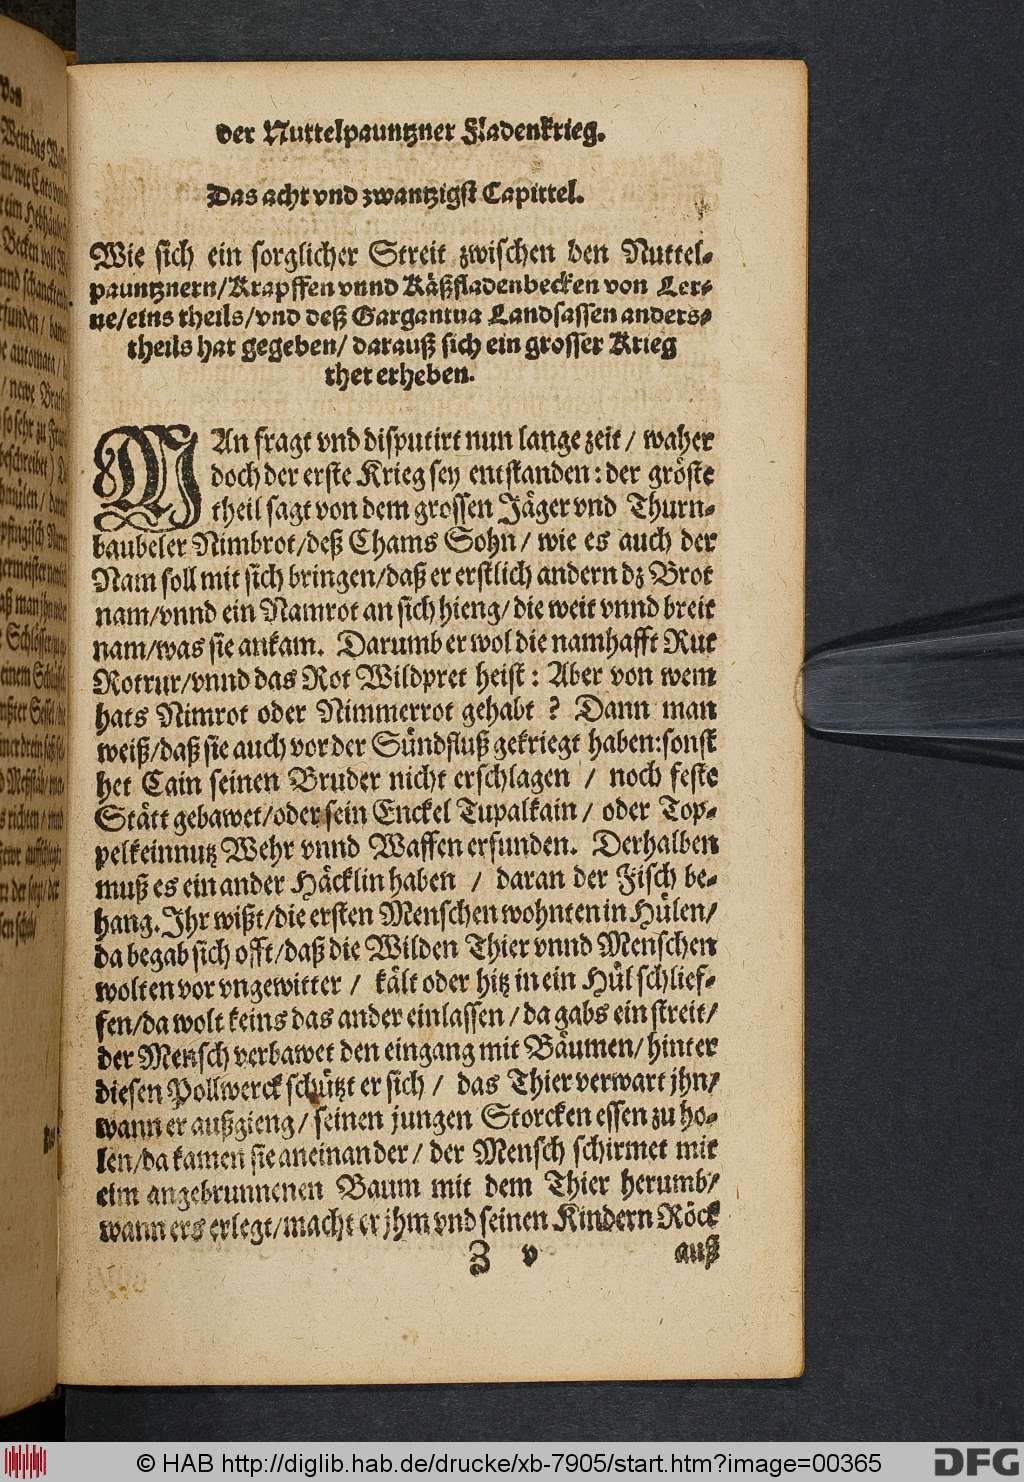 der Nuttelpauntzner Fladenkrieg.
Das acht vnd zwantzigst Capittel.
Wie sich ein sorglicher Streit zwischen den Nuttel-
pauntznern/Krapffen vnnd Käßfladenbecken von Ler-
ne/eins theils/vnd deß Gargantua Landsassen anders-
theils hat gegeben/ darauß sich ein grosser Krieg
thet erheben.
MAn fragt vnd disputirt nun lange zeit / waher
doch der erste Krieg sey entstanden: der gröste
theil sagt von dem grossen Jäger vnd Thurn-
baubeler Nimbrot/deß Chams Sohn/ wie es auch der
Nam soll mit sich bringen/daß er erstlich andern dz Brot
nam/vnnd ein Namrot an sich hieng/die weit vnnd breit
nam/was sie ankam. Darumb er wol die namhafft Rut
Rotrur/vnnd das Rot Wildpret heist: Aber von wem
hats Nimrot oder Nimmerrot gehabt? Dann man
weiß/daß sie auch vor der Sündfluß gekriegt haben:sonst
het Cain seinen Bruder nicht erschlagen / noch feste
Stätt gebawet/oder sein Enckel Tupalkain/ oder Top-
pelkeinnutz Wehr vnnd Waffen erfunden. Derhalben
muß es ein ander Häcklin haben / daran der Fisch be-
hang. Jhr wißt/die ersten Menschen wohnten in Hülen/
da begab sich offt/daß die Wilden Thier vnnd Menschen
wolten vor vngewitter / kält oder hitz in ein Hül schlief-
fen/da wolt keins das ander einlassen/da gabs ein streit/
der Mensch verbawet den eingang mit Bäumen/hinter
diesen Pollwerck schützt er sich / das Thier verwart jhn/
wann er außgieng/ seinen jungen Storcken essen zu ho-
len/da kamen sie aneinander/ der Mensch schirmet mit
eim angebrunnenen Baum mit dem Thier herumb/
wann ers erlegt/macht er jhm vnd seinen Kindern Röck
Z v auß
© HAB http://diglib.hab.de/drucke/xb-7905/start.htm?image=00365
DFG